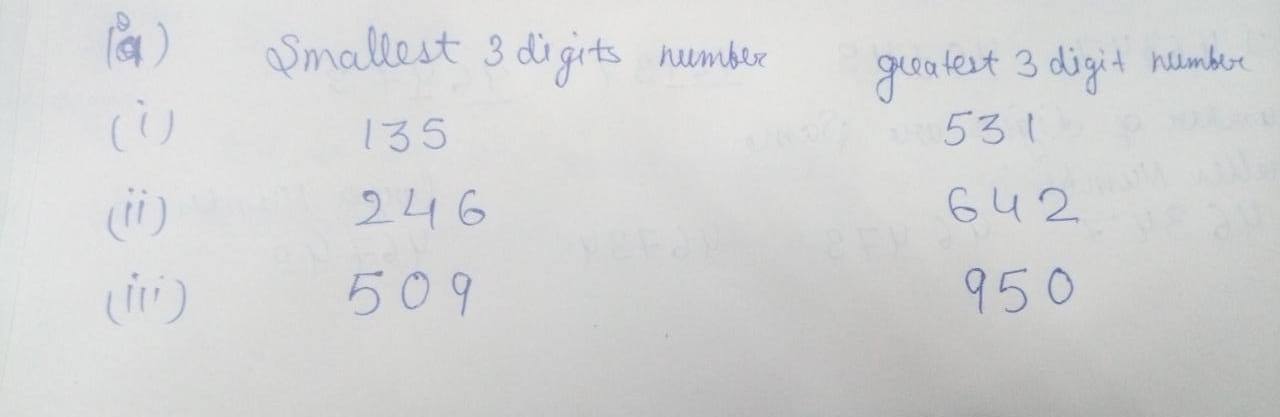 (a) Smallest 3 digits number greatest 3 digit number
(i) 135 531
(ii) 246 642
(iii) 509 950